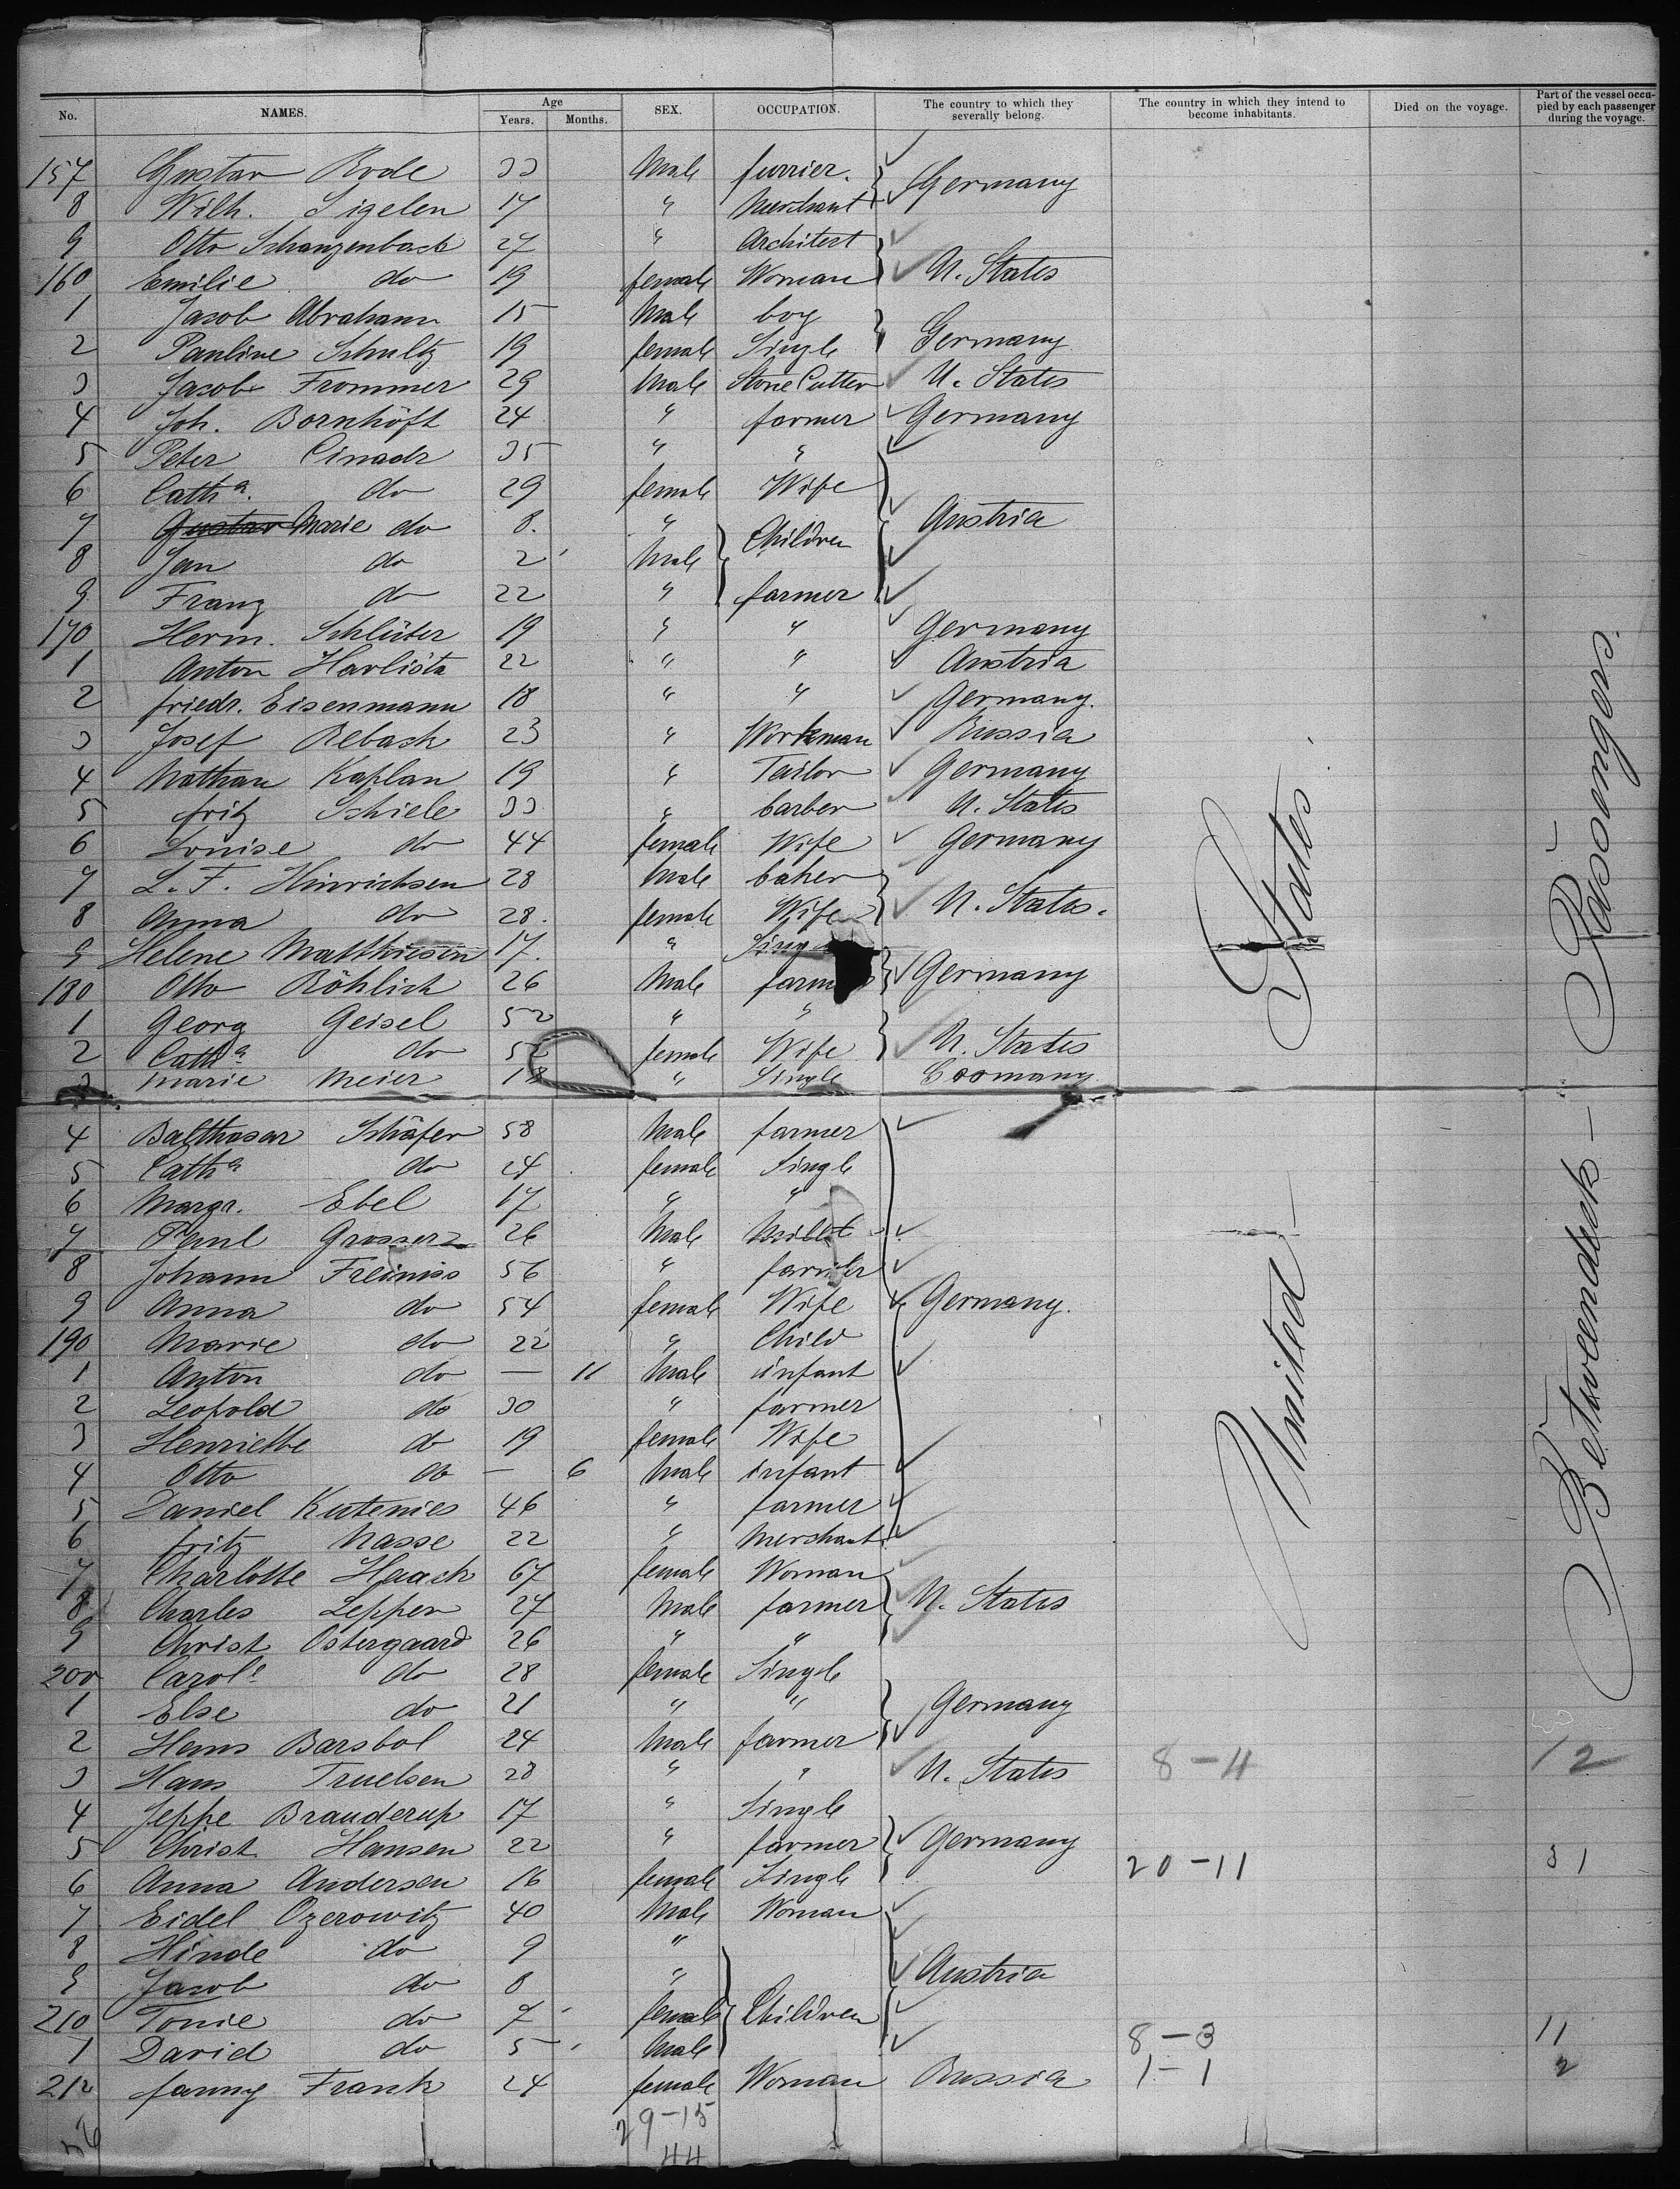 No. NAMES. Age Years. Months. SEX. OCCUPATION. The country to which they severally belong. The country in which they intend to become inhabitants. Died on the voyage. Part of the vessel occupied by each passenger during the voyage.
157 Gustav Bode 33 Male furrier. Germany
8 Wilh. Sigelen 17 " Merchant
9 Otto Schanzenbach 27 " Architect
160 Emilie do 19 female Woman U. States
1 Jacob Abraham 15 Male boy
2 Pauline Schultz 19 female Single Germany
3 Jacob Frommer 29 Male Stone Cutter U. States
4 Joh. Bornhöft 24 " farmer Germany
5 Peter Cinadr 35 " "
6 Cath a. do 29 female Wife
7 Gustav Marie do 8. " Children Austria
8 Jan do 2 Male
9 Franz do 22 " farmer
170 Herm. Schlüter 19 " " Germany
1 Anton Havlista 22 " " Austria
2 friedr. Eisenmann 18 " " Germany.
3 Josef Rebach 23 " Workman Russia
4 Nathan Kaplan 19 " Tailor Germany
5 fritz Schiele 33 " barber U. States
6 Louise do 44 female Wife Germany
7 L. F. Hinrichsen 28 Male baker
8 Anna do 28. female Wife U. States.
9 Helene Matthiesen 17. "
180 Otto Röhlich 26 Male Germany
1 Georg Geisel 52 " "
2 Cath a do female Wife U. States
3 Marie Meier 18 " Single Germany
4 Balthasar Schäfer 58 Male farmer
5 Cath a do 24 female Single
6 Margr. Ebel 17 " "
7 Paul Grosser 26 Male
8 Johann Freimiss 56 " farmer
9 Anna do 54 female Wife Germany.
190 Marie do 22 " Child
1 Anton do — 11 Male infant
2 Leopold do 30 " farmer
3 Henriette do 19 female Wife
4 Otto do — 6 Male infant
5 Daniel Kutenies 46 " farmer
6 fritz Nasse 22 " Merchant
7 Charlotte Haack 67 female Woman
8 Charles Lepper 27 Male farmer U. States
9 Christ Ostergaard 26 " "
200 Carol e do 28 female Single
1 Else do 21 " " Germany
2 Hans Barsbol 24 Male farmer
3 Hans Truelsen 28 " " U. States 8 - 11 12
4 Jeppe Brauderup 17 " Single
5 Christ Hansen 22 " farmer Germany
6 Anna Andersen 16 female Single 20 - 11 31
7 Eidel Ozerowitz 40 Male Woman
8 Hinde do 9 "
9 Jacob do 8 " Austria
210 Tonie do 7 female Children
1 David do 5 Male 8 - 3 11
212 fanny Frank 24 female Woman Russia 1 - 1 2
56 29-15
44
United States.
Betweendeck — Passengers.